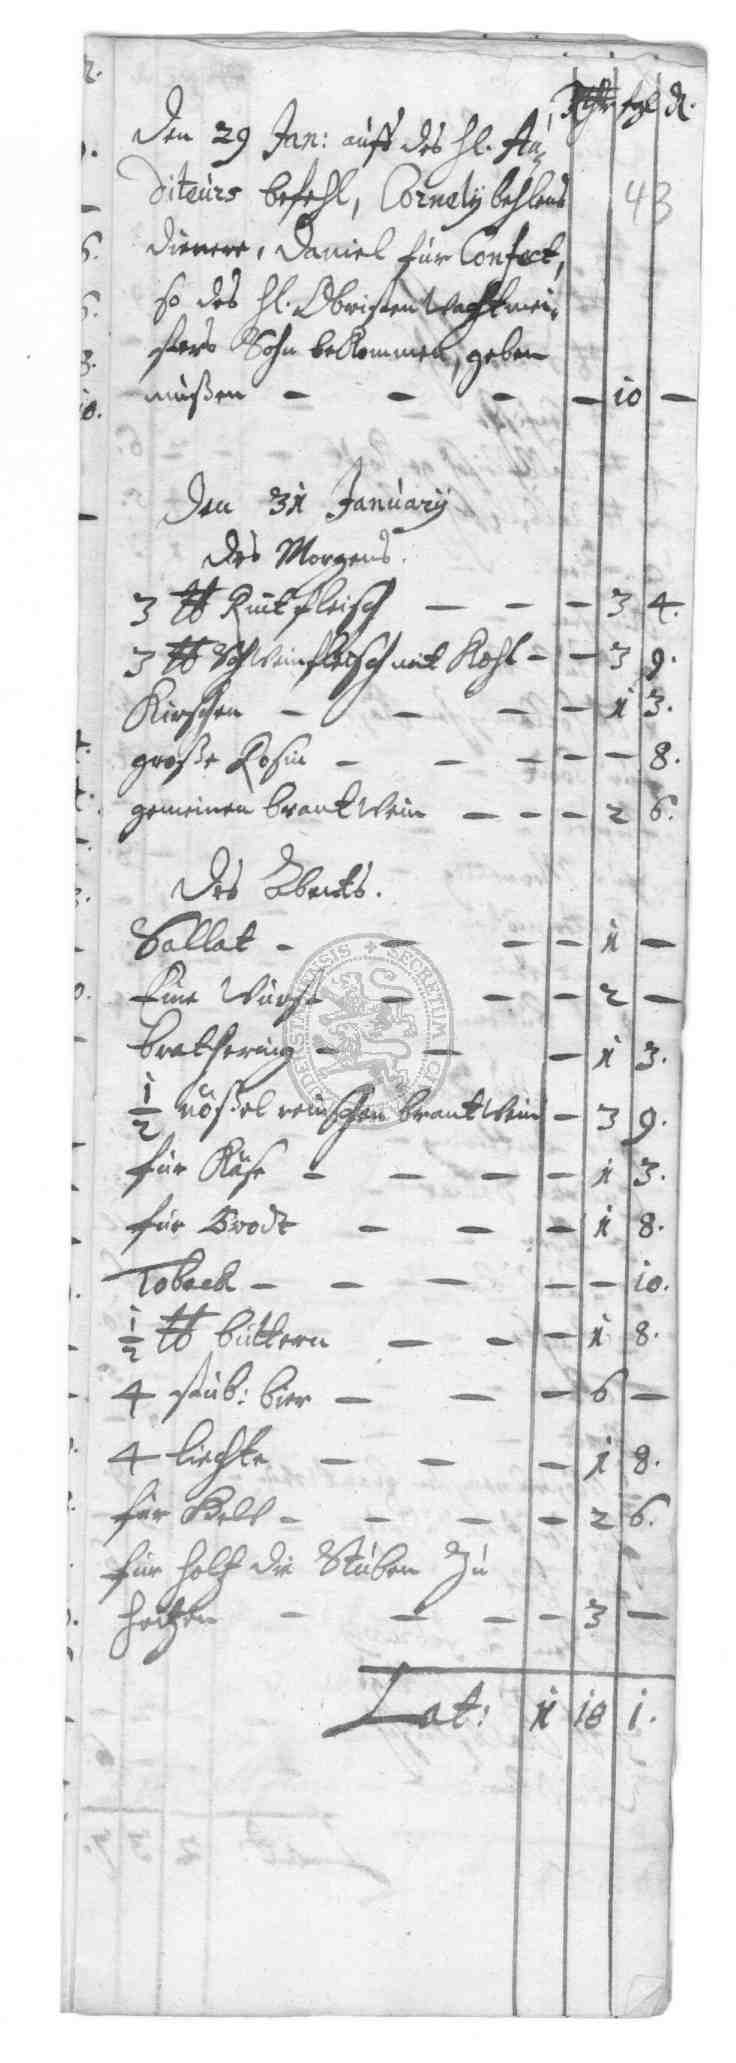 Rthr sgl d.
Den 29 Jan: auff des Hl. Au-
diteurs befehl, Cornely behlens
43
dienere, Daniel für Confect,
so des Hl. Obristen Wachtmei-
sters Sohn bekommen, geben
müßen — — — — 10 —
Den 31 January
des Morgens.
3 ℔ Rintfleisch — — — 3 4.
3 ℔ Schweinfleisch mit Kohl — — 3 9.
Kirschen — — — — 1 3.
große Rosin — — — — — 8.
gemeinen brantwein — — — 2 6.
Des Abents.
Sallat — — — — 1 —
Eine Wurst — — — 2 —
brathering — — — 1 3.
½ nößel reinschen brantwein — 3 9.
für Käse — — — — 1 3.
für Brodt — — — 1 8.
Toback — — — — — 10.
½ ℔ buttern — — — 1 8.
4 stüb: bier — — — 6 —
4 liechte — — — — 1 8.
für — — — — 2 6.
für holtz die Stuben zu
heitzen — — — — 3 —
Lat: 1 18 1.
SECRETUM